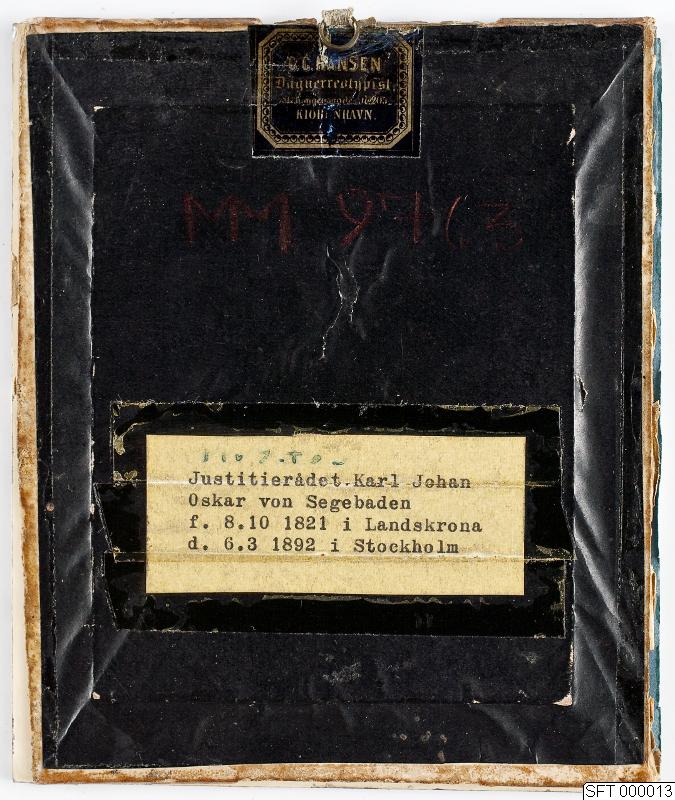 C. G. HANSEN
Daguerreotypist,
KIOBENHAVN.
MM 9763
Justitierådet Karl Johan
Oskar von Segebaden
f. 8.10 1821 i Landskrona
d. 6.3 1892 i Stockholm
SFT 000013